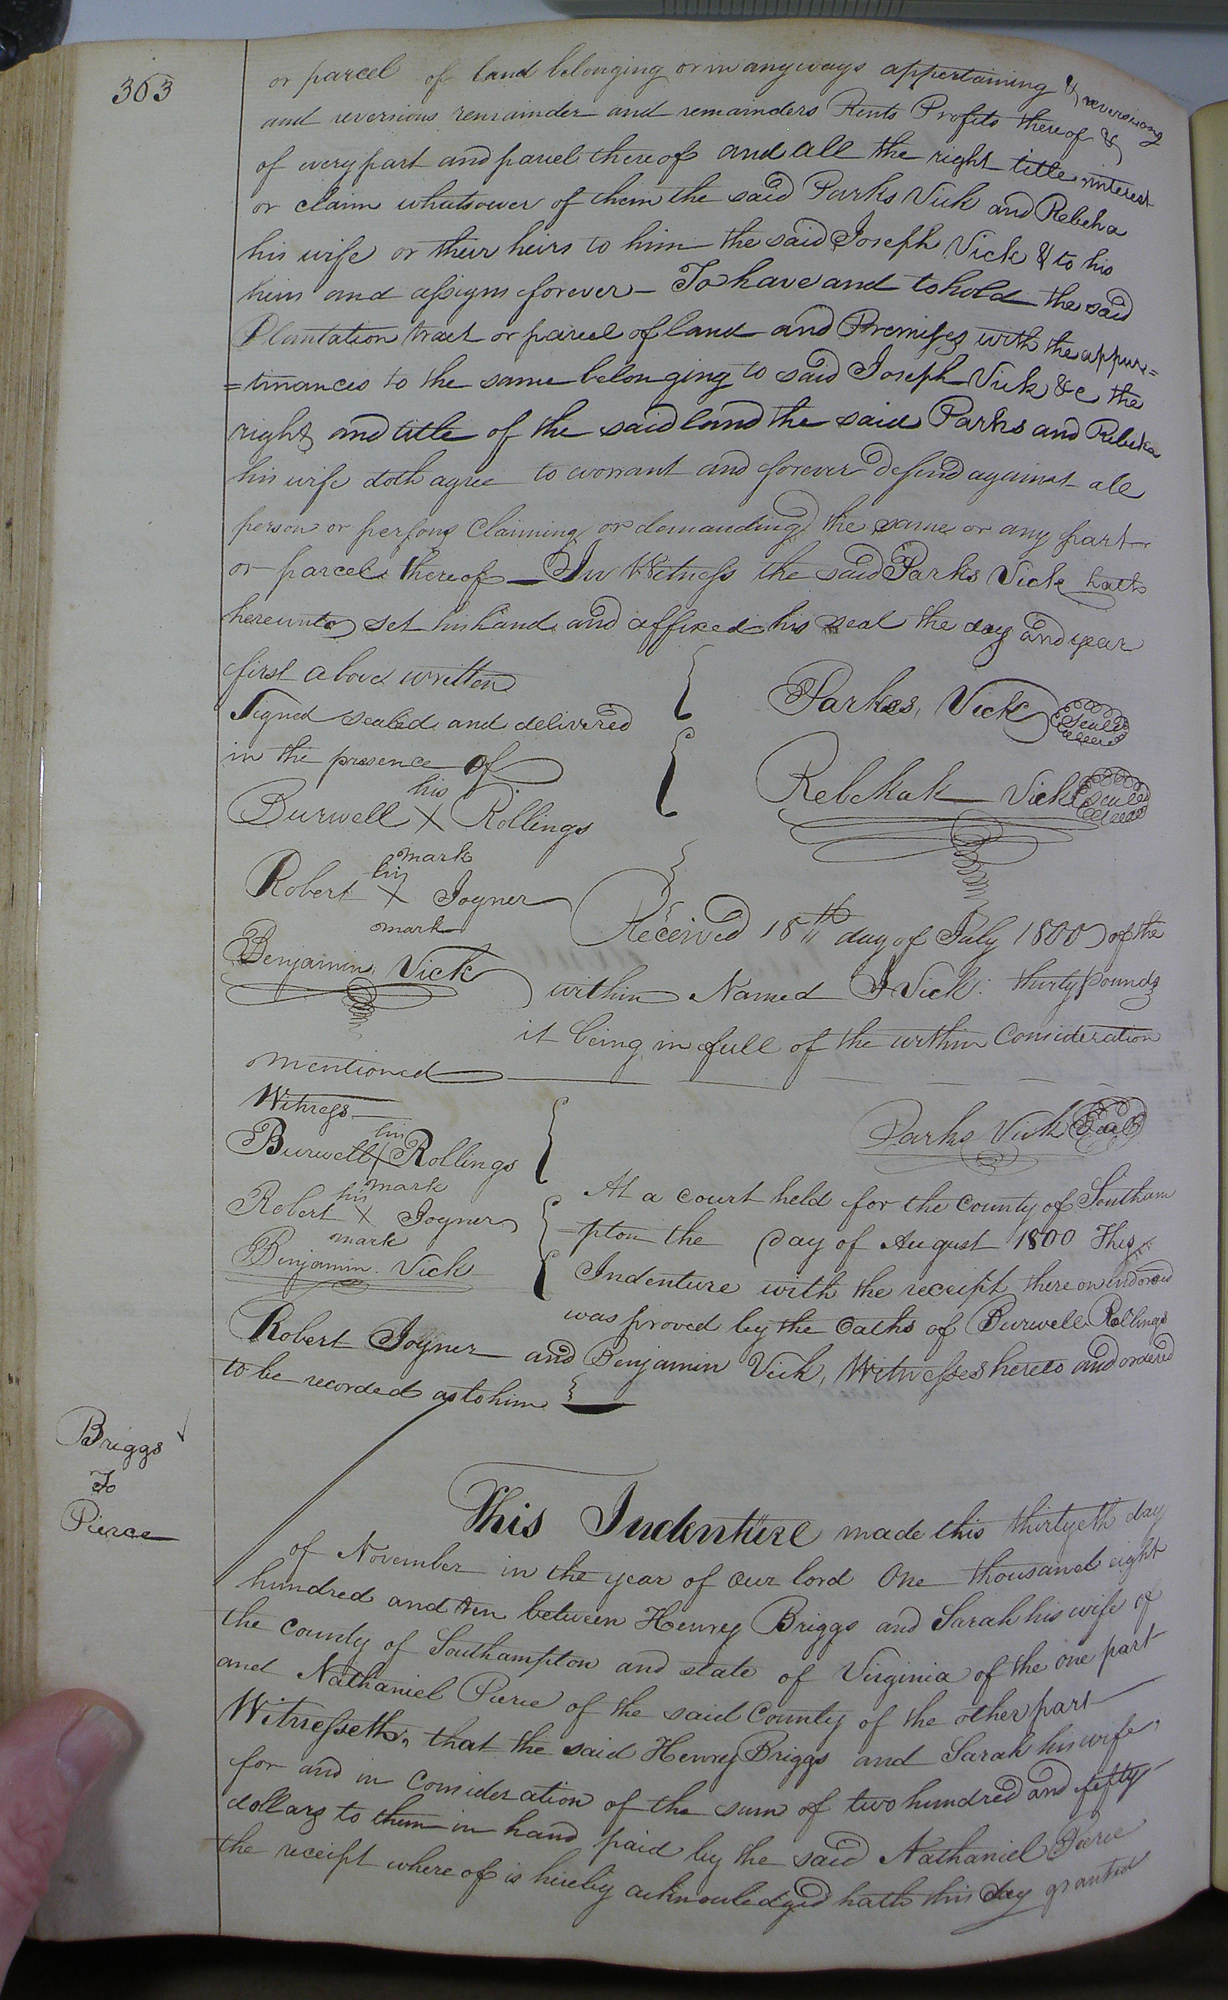 363
or parcel of land belonging or in anyways appertaining & reversiong
and reversions remainder and remainders Rents Profits thereof &
of every part and parcel thereof and all the right title interest
or claim whatsoever of them the said Parks Vick and Rebeka
his wife or their heirs to him the said Joseph Vick & to his
heirs and assigns forever – To have and to hold the said
Plantation tract or parcel of land and Premises with the appur=
=tinances to the same belonging to said Joseph Vick &c the
right and title of the said land the said Parks and Rebeka
his wife doth agree to worrant and forever Defend against all
person or persons Claiming or demanding the same or any part
or parcel thereof – In Witness the said Parks Vick hath
hereunto set his hand and affixed his seal the day and year
first above written
Signed sealed and delivered
in the presence of
Parkes Vick Seal
Rebekah Vick Seal
his
Burwell X Rollings
mark
his
Robert X Joyner
mark
Benjamin Vick
Received 18th day of July 1800 of the
within Named J Vick thirty Pounds
it being in full of the within Consideration
mentioned
Witness
Parks Vick Seal
his
Burwell X Rollings
mark
his
Robert X Joyner
mark
Benjamin Vick
At a court held for the County of Southam
pton the day of August 1800 This
Indenture with the receipt there on indorsed
was proved by the Oaths of Burwell Rollings
Robert Joyner and Benjamin Vick, Witnesses hereto and ordered
to be recorded as to him
Briggs
To
Pierce
This Indenture made this thirtyeth day
of November in the year of our lord One thousand eight
hundred and ten between Henry Briggs and Sarah his wife of
the County of Southampton and state of Virginia of the one part
and Nathaniel Pierce of the said County of the other part
Witnesseth, that the said Henry Briggs and Sarah his wife,
for and in Consideration of the sum of two hundred and fifty
dollars to them in hand paid by the said Nathaniel Pierce
the receipt where of is hereby acknowledged hath this day granted